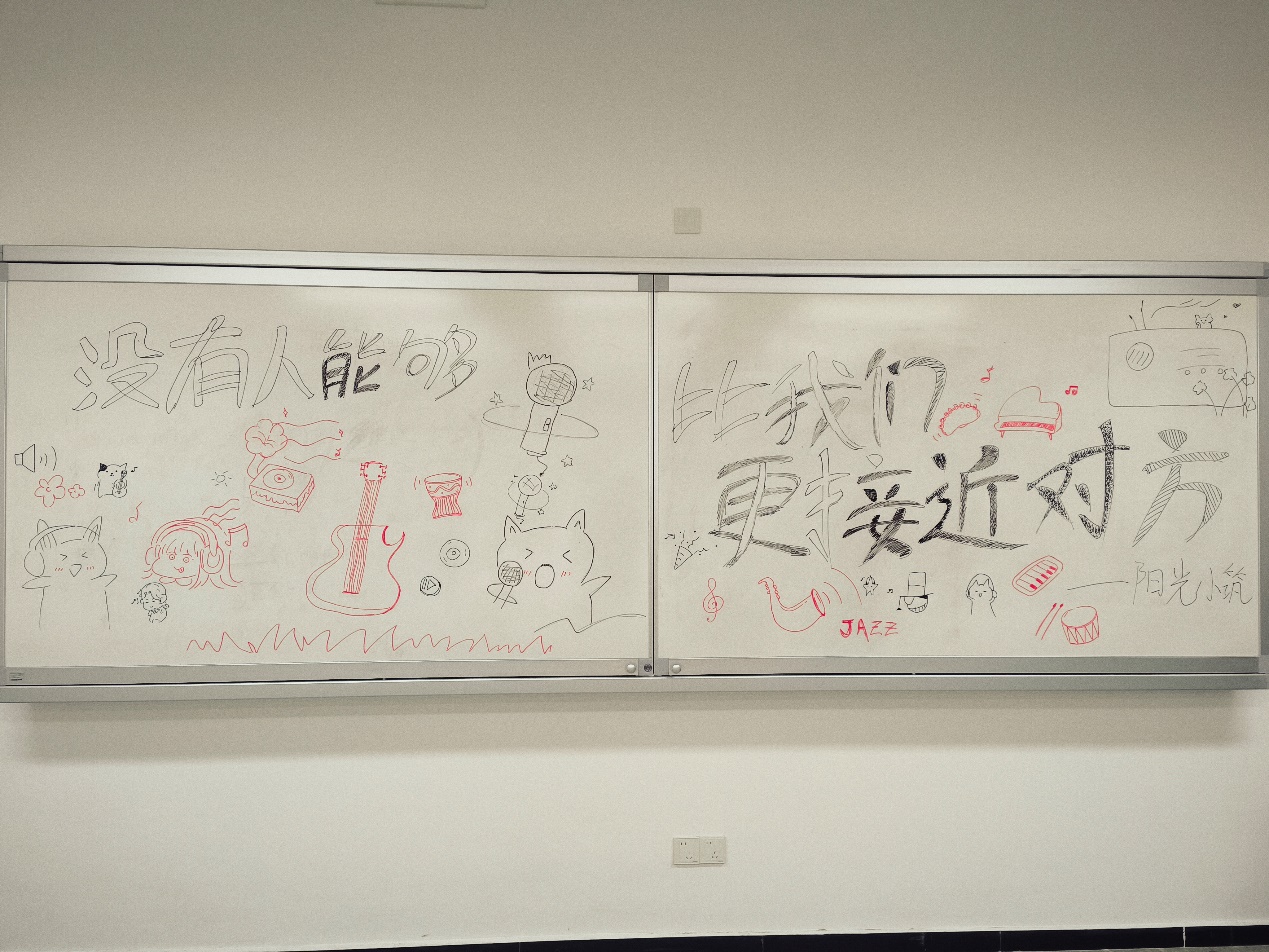 没有人能够
比我们
更接近对方
——阳光小筑
JAZZ